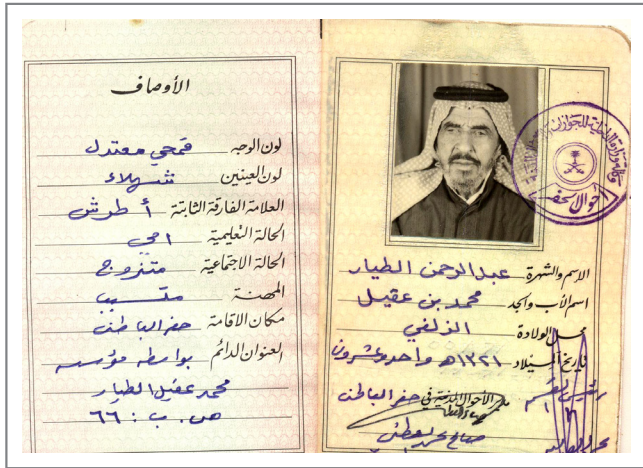 الأوصاف
لون الوجه قمحي معتدل
لون العينين شهلاء
العلامة الفارقة الثابتة أطرش
الحالة التعليمية امي
الحالة الاجتماعية متزوج
المهنة متسبب
مكان الاقامة حفر الباطن
العنوان الدائم بواسطه مؤسسه
محمد عقيل الطيار
ص . ب : ٦٦
الاسم والشهرة عبدالرحمن الطيار
اسم الأب والجد محمد بن عقيل
محل الولادة الزلفي
تاريخ الميلاد ١٣٢١هـ واحد وعشرون
الأحوال المدنية في حفر الباطن